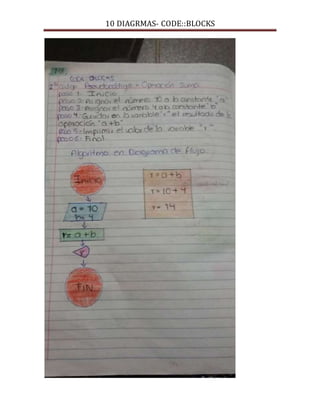 10 DIAGRMAS- CODE::BLOCKS
CODE BLOCKS
Pseudocódigo - Operación Suma
paso 1: Inicio
paso 2: Asignar el número 10 a la constante "a"
paso 3: Asignar el número 4 a la constante "b"
paso 4: Guardar en la variable "r" el resultado de la
operación "a+b"
paso 5: Imprimir el valor de la variable "r"
paso 6: Final
Algoritmo en Diagrama de flujo
Inicio
a = 10
b = 4
r = a + b
r
FIN.
r = a + b
r = 10 + 4
r = 14